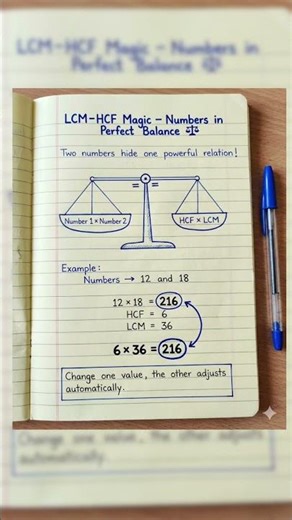 LCM-HCF Magic – Numbers in
Perfect Balance ⚖
LCM–HCF Magic – Numbers in
Perfect Balance ⚖
Two numbers hide one powerful relation!
=
=
Number 1 × Number 2
HCF × LCM
Example:
Numbers → 12 and 18
12 × 18 = 216
HCF = 6
LCM = 36
6 × 36 = 216
Change one value, the other adjusts
automatically.
Change one value, the other adjusts
automatically.